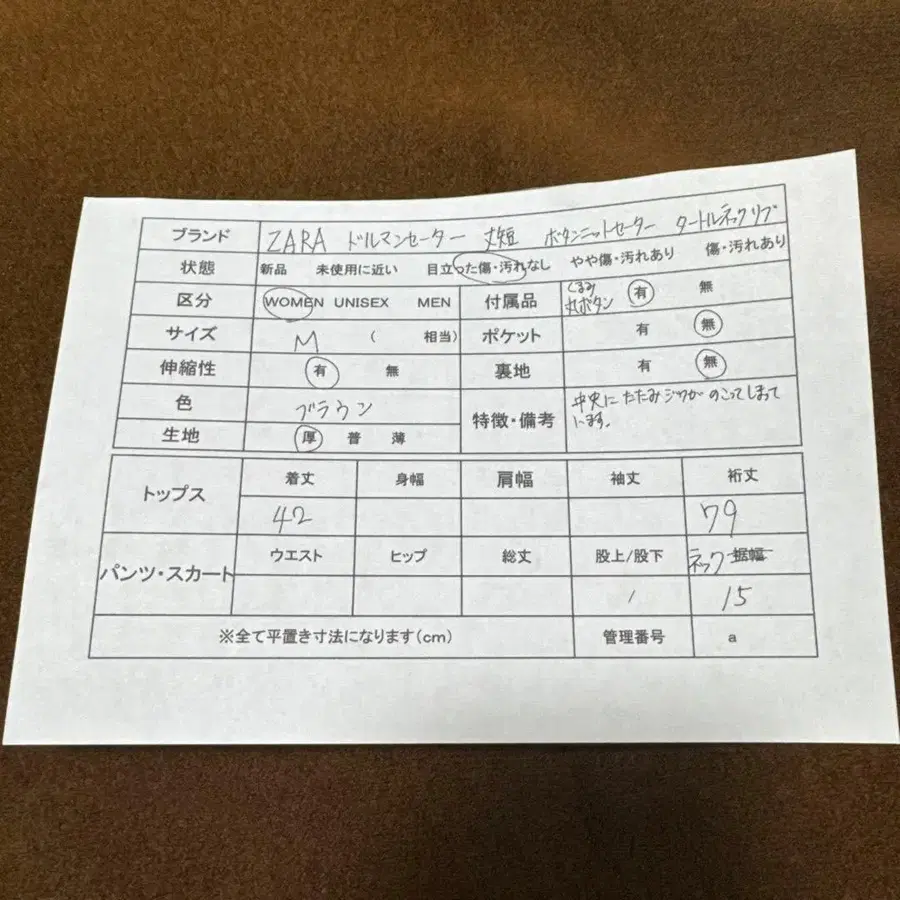 ブランド ZARA ドルマンセーター 丈短 ボタンニットセーター タートルネックリブ
状態 新品 未使用に近い 目立った傷・汚れなし やや傷・汚れあり 傷・汚れあり
区分 WOMEN UNISEX MEN 付属品 くるみ丸ボタン 有 無
サイズ M ( 相当) ポケット 有 無
伸縮性 有 無 裏地 有 無
色 ブラウン 特徴・備考 中央にたたみジワがのこってしまって
生地 厚 普 薄 います。
トップス 着丈 身幅 肩幅 袖丈 裄丈
42 79
パンツ・スカート ウエスト ヒップ 総丈 股上/股下 ネック 裾幅
/ 15
※全て平置き寸法になります(cm) 管理番号 a